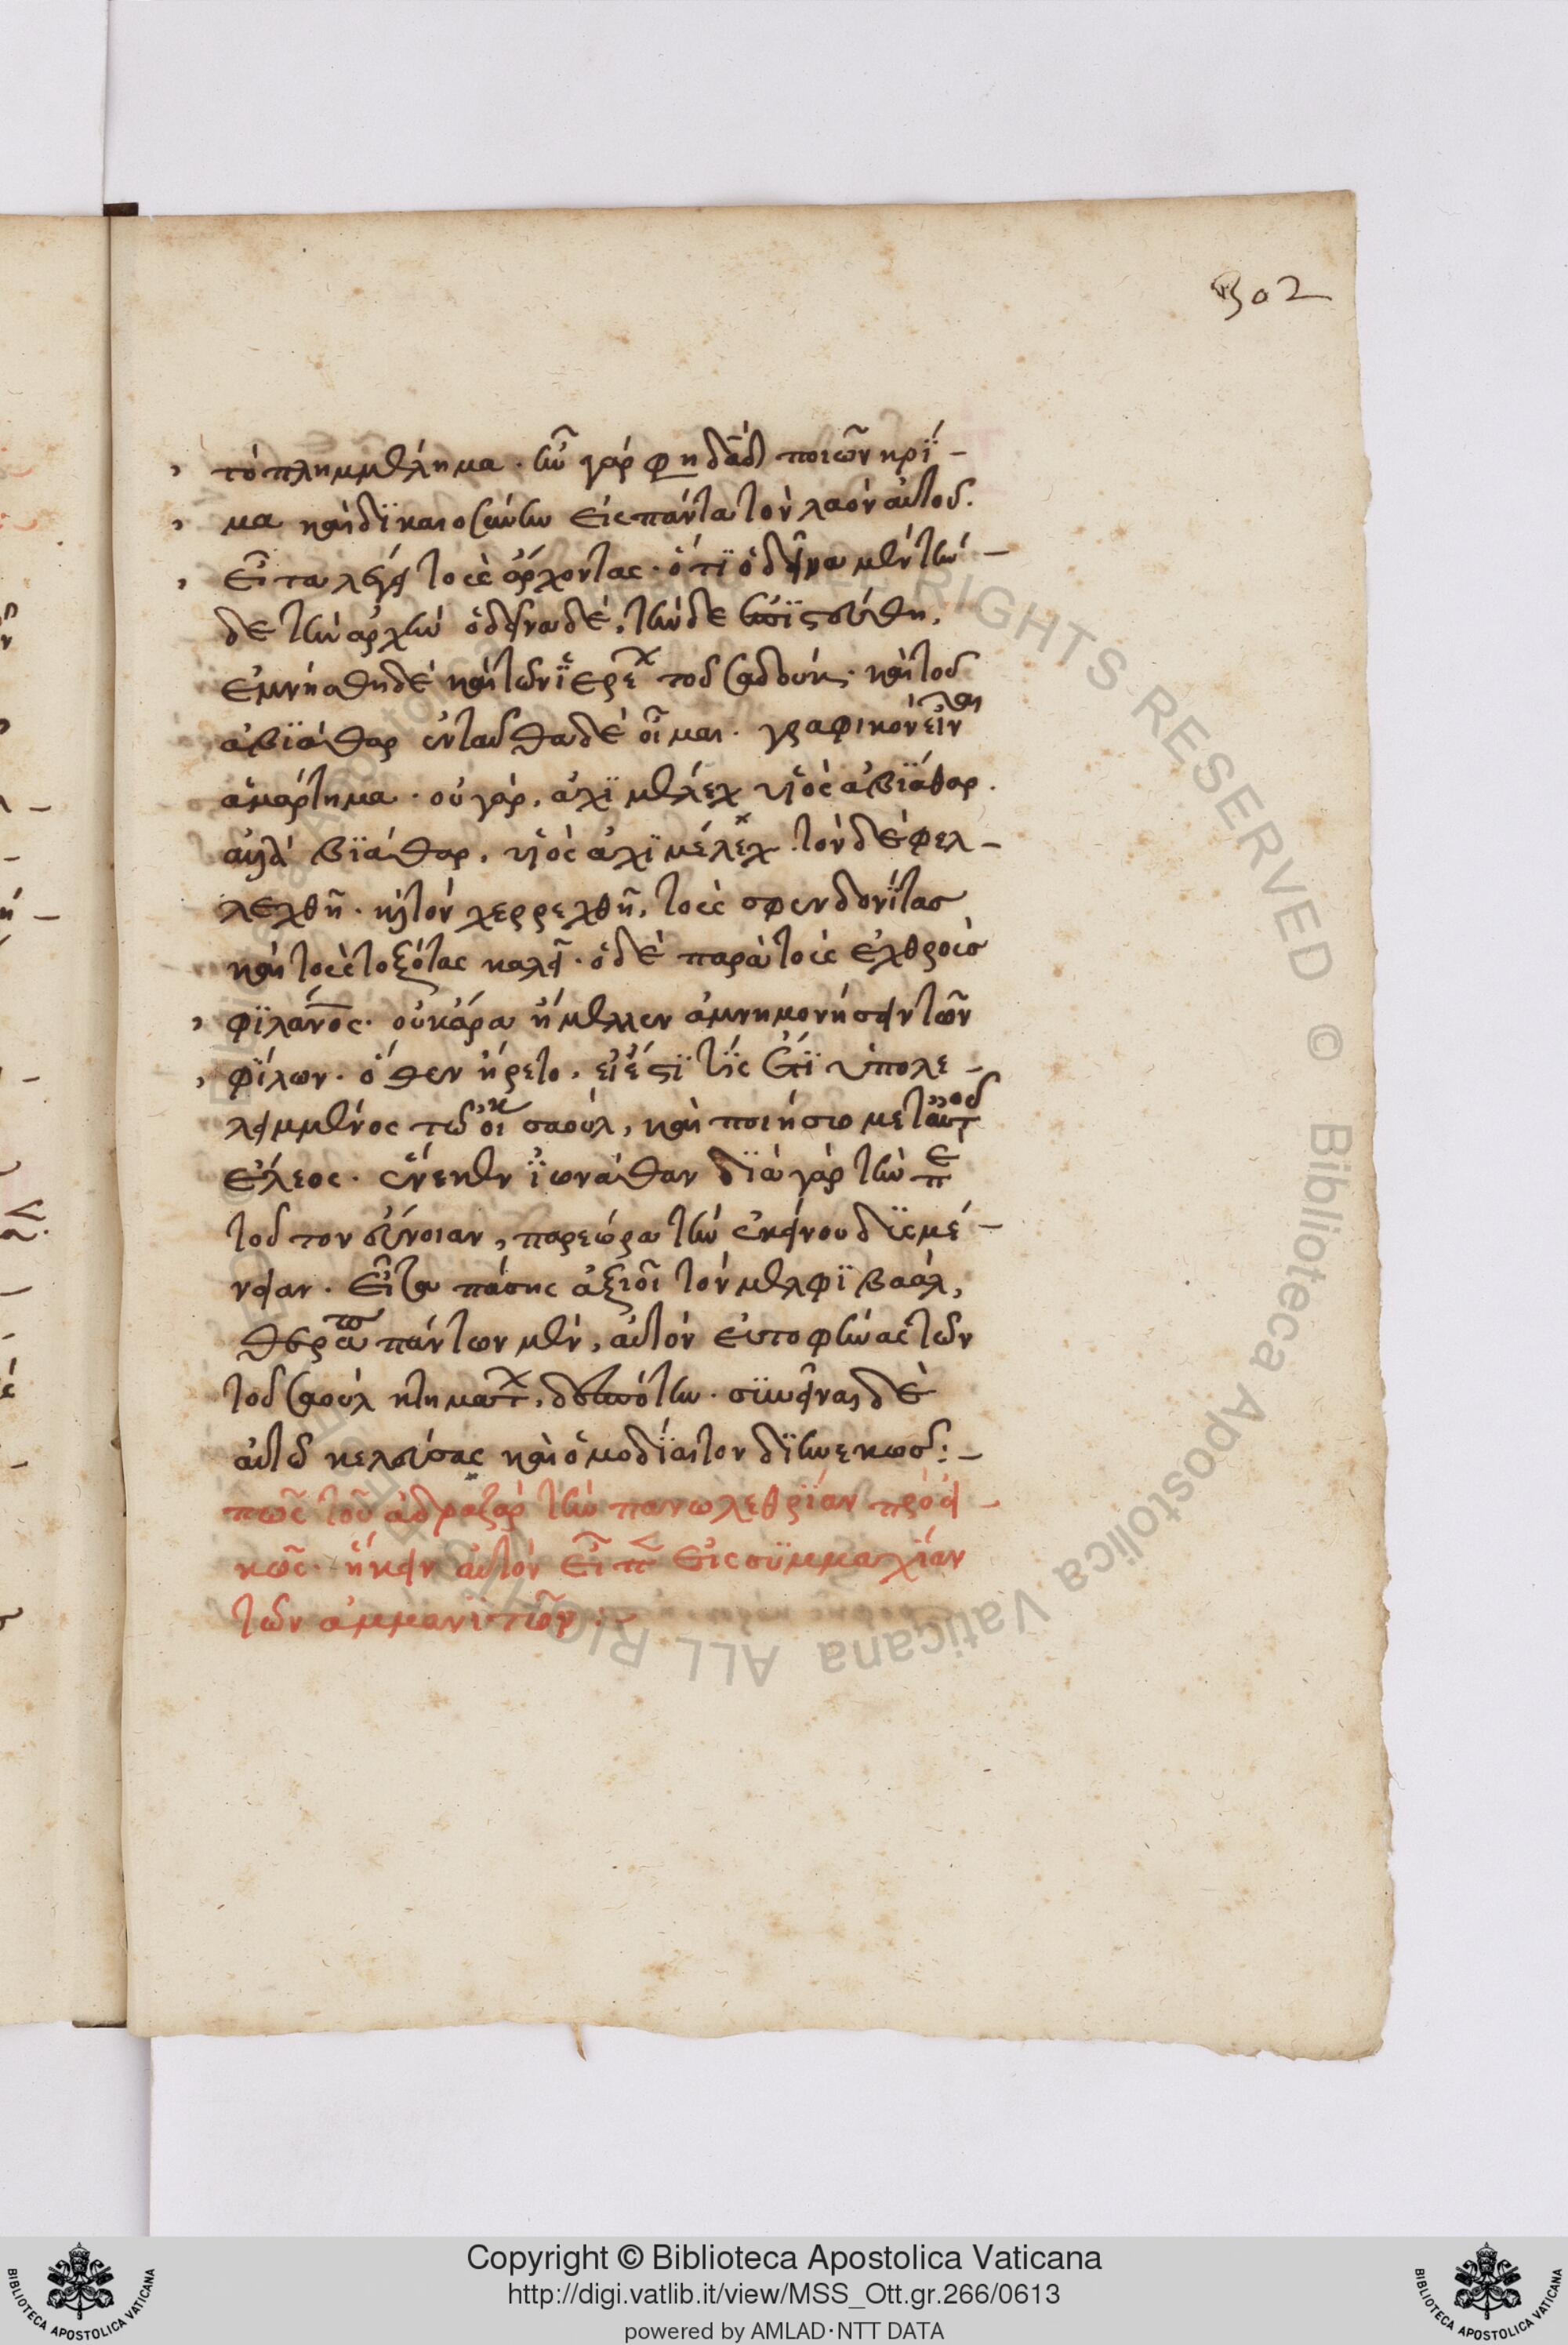 302
τὸ πλημμέλημα. ἦν γάρ φη δᾱδ ποιῶν κρί-
μα καὶ δϊκαιοσύνην εἰς πάντα τὸν λαὸν αὐτοῦ.
εἶτα λέγει τοὺς ἄρχοντας. ὅτϊ ὁ δεῖνα μὲν τήν-
δε τὴν ἀρχὴν ὁ δεῖνα δέ, τήνδε ἐπϊστεύθη.
ἐμνήσθη δὲ καὶ τῶν ἱερε τοῦ σαδούκ. καὶ τοῦ
ἀβϊάθαρ ἐνταῦθα δὲ οἶμαι. γραφικὸν εἶν
ἁμάρτημα. οὐ γάρ, ἀχϊμέλεχ υἱὸς ἀβϊάθαρ.
ἀλλ' ἀβϊάθαρ, υἱὸς ἀχϊμέλεχ. τὸν δὲ φελ-
λεχθῆ. καὶ τὸν χερρεχθῆ, τοὺς σφενδονίτας
καὶ τοὺς τοξότας καλεῖ. ὁ δὲ παρὰ τοῖς ἐχθροῖς
φϊλάνος. οὐκ ἄρα ἤμελλεν ἀμνημονήσειν τῶν
φίλων. ὅθεν ἤρετο, εἰ ἔστϊ τϊς ἔτϊ ὑπολε-
λειμμένος τῶ οἴκ σαούλ, καὶ ποιήσω μετ αὐτοῦ
ἔλεος. ἕνεκεν ἰωνάθαν δϊὰ γὰρ τὴν πε
τοῦτον εὔνοιαν, παρεώρα τὴν ἐκείνου δϊσμέ-
νειαν. εἶτα πάσης ἀξιοῖ τὸν μελφϊβαάλ,
θεραπ πάντων μέν, αὐτὸν ἀποφήνας τῶν
τοῦ σαοὺλ κτημάτ, δεσπότην. συνεῖναι δὲ
αὐτῶ κελεύσας καὶ ὁμοδϊαιτον διηνεκῶς:-
πῶς τοῦ ἀδραζὰρ τὴν πανωλεθρίαν προει-
κῶς. ἥκειν αὐτὸν εἶπ εἰς συμμαχίαν
τῶν ἀμμανϊτῶν:-
Copyright © Biblioteca Apostolica Vaticana
http://digi.vatlib.it/view/MSS_Ott.gr.266/0613
powered by AMLAD·NTT DATA
BIBLIOTECA APOSTOLICA VATICANA
BIBLIOTECA APOSTOLICA VATICANA
© Biblioteca Apostolica Vaticana ALL RIGHTS RESERVED